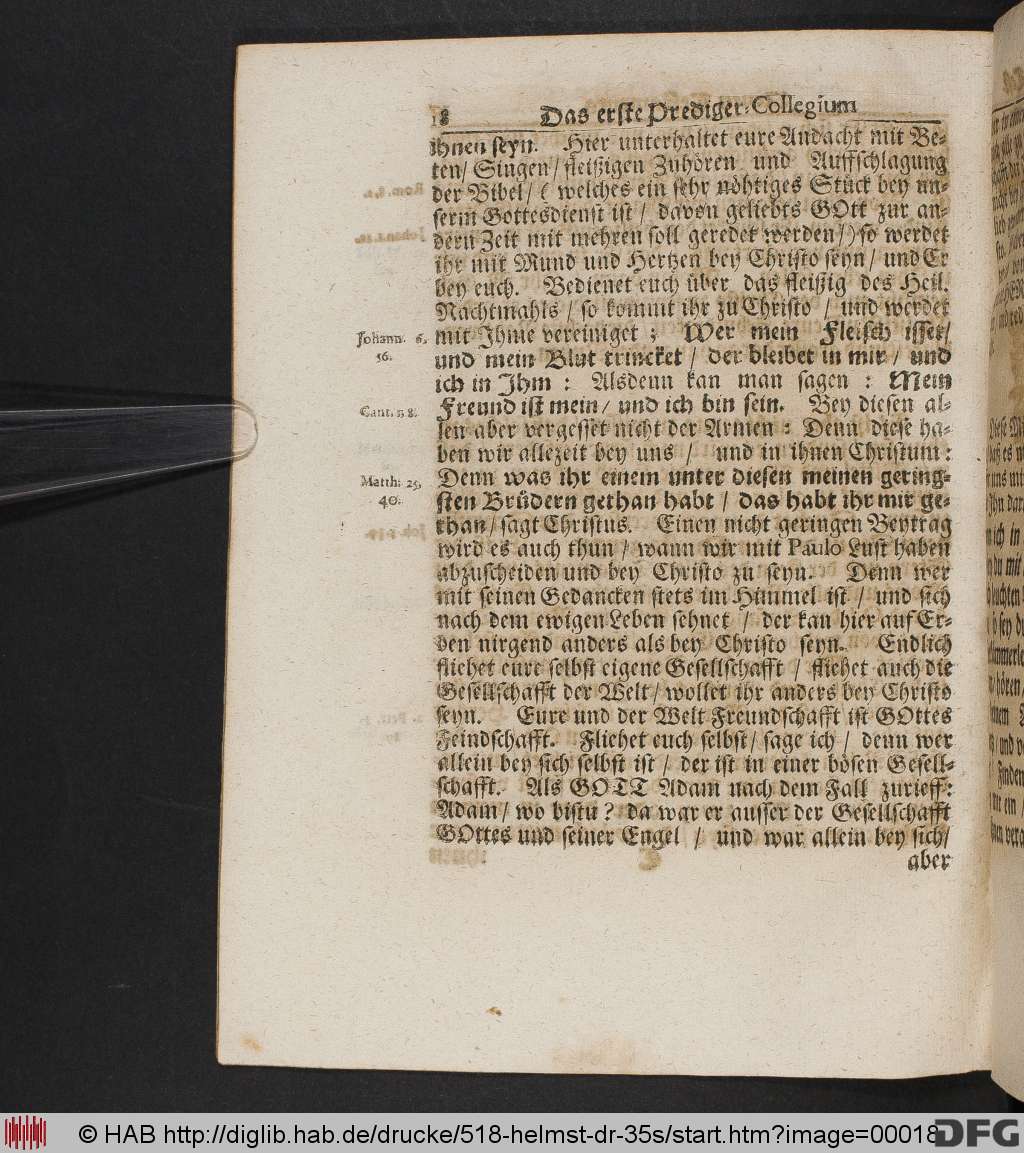 8 Das erste Prediger-Collegium
ihnen seyn. Hier unterhaltet eure Andacht mit Be-
ten/ Singen/ fleißigen Zuhören und Auffschlagung
der Bibel/ ( welches ein sehr nöhtiges Stück bey un-
serm Gottesdienst ist / davon geliebts GOtt zur an-
dern Zeit mit mehren soll geredet werden/) so werdet
ihr mit Mund und Hertzen bey Christo seyn/ und Er
bey euch. Bedienet euch über das fleißig des Heil.
Nachtmahls / so kommt ihr zu Christo / und werdet
mit Ihme vereiniget ; Wer mein Fleisch isset/
Johann. 6.
56.
und mein Blut trincket / der bleibet in mir / und
ich in Ihm : Alsdenn kan man sagen : Mein
Freund ist mein/ und ich bin sein. Bey diesen al-
Cant. 5 8.
len aber vergesset nicht der Armen : Denn diese ha-
ben wir allezeit bey uns / und in ihnen Christum :
Denn was ihr einem unter diesen meinen gering-
Matth: 25,
40.
sten Brüdern gethan habt / das habt ihr mir ge-
than/ sagt Christus. Einen nicht geringen Beytrag
wird es auch thun / wann wir mit Paulo Lust haben
abzuscheiden und bey Christo zu seyn. Denn wer
mit seinen Gedancken stets im Himmel ist / und sich
nach dem ewigen Leben sehnet / der kan hier auf Er-
den nirgend anders als bey Christo seyn. Endlich
fliehet eure selbst eigene Gesellschafft / fliehet auch die
Gesellschafft der Welt/ wollet ihr anders bey Christo
seyn. Eure und der Welt Freundschafft ist GOttes
Feindschafft. Fliehet euch selbst/ sage ich / denn wer
allein bey sich selbst ist / der ist in einer bösen Gesell-
schafft. Als GOTT Adam nach dem Fall zurieff:
Adam/ wo bistu? da war er ausser der Gesellschafft
GOttes und seiner Engel / und war allein bey sich/
aber
© HAB http://diglib.hab.de/drucke/518-helmst-dr-35s/start.htm?image=00018
DFG